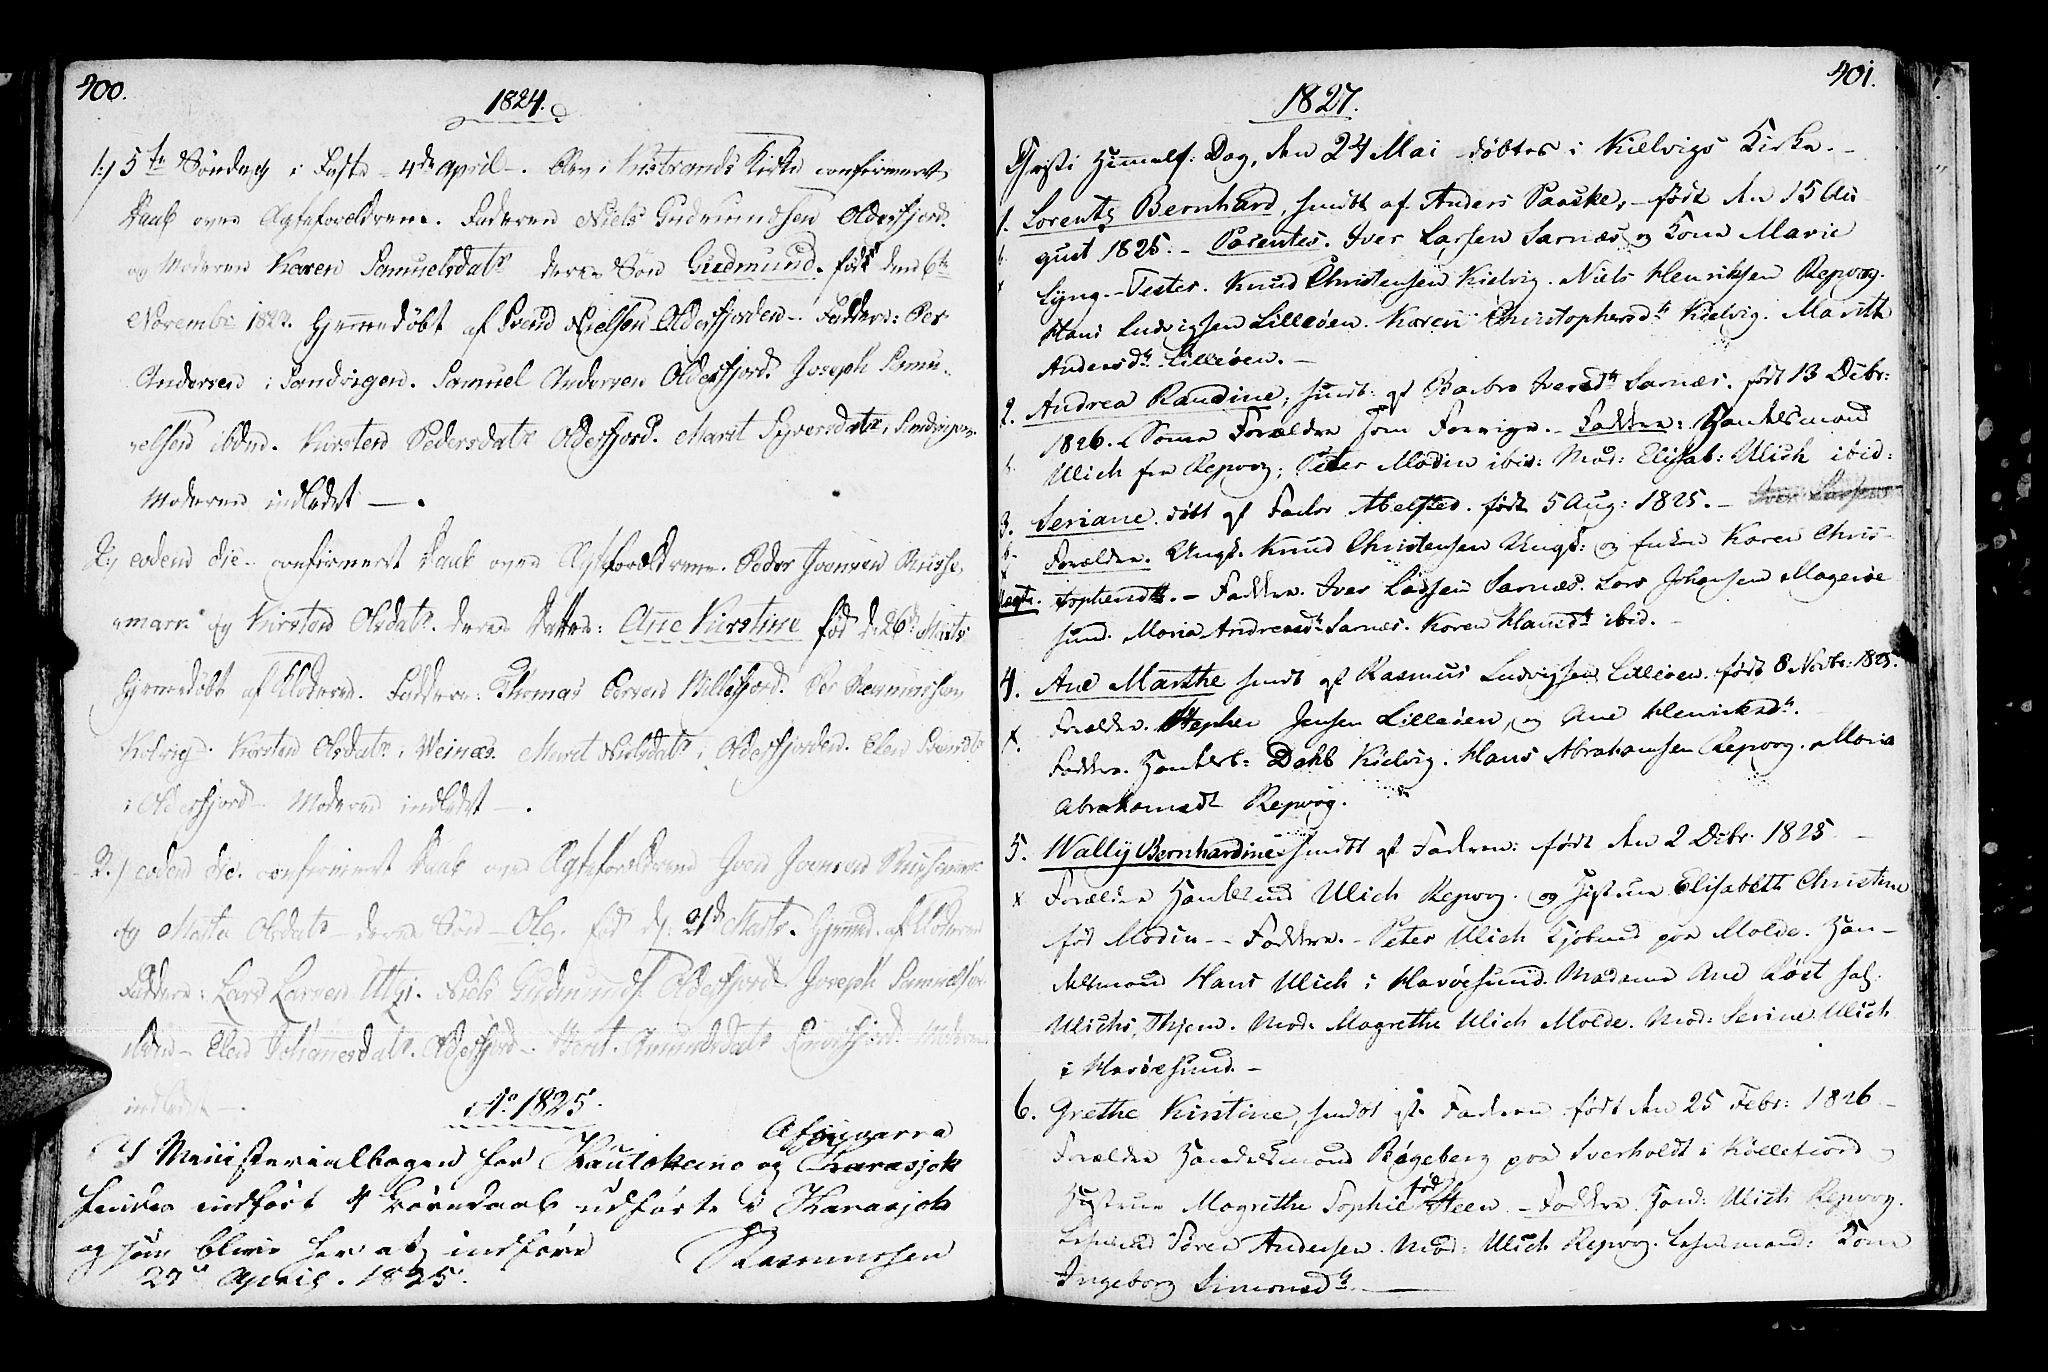 400.
1824.
1:) 5te Søndag i Faste - 4de April -. blev i Kistrands Kirke confirmert
Daab over Ægteforeldrene. Faderen Niels Gudmundsen Oldersfjord.
og Moderen Karen Samuelsdatr deres Søn Gudmund. født den 6te
Novembr 1823. Hjemmedøbt af Svend Nielsen Oldersfjorden -. Faddere: Per
Andersen i Sandvigen. Samuel Andersen Oldersfjord. Joseph Samu-
elsen ibdm. Kirsten Pedersdatr Oldersfjord. Marit Syversdatr, Sandvigen.
Moderen indledet —.
2:) eodem die - confirmert Daab over Ægteforældrene. Peder Joensen Russe-
mark og Kirsten Olsdatr. deres Datter: Ane Kirstine fød d: 26de Marts
Hjemmedøbt af Moderen. Faddere: Thomas Persen Billefjord. Per Rasmussen
Kolvig. Kirsten Olsdatr i Weinæs. Marit Nielsdatr i Oldersfjorden. Elen Svendsdr
i Oldersfjord - Moderen indledet —.
3.) eodem die. confirmert Daab over Ægteforeldrene Joen Joensen Russemark
og Matta Olsdatr - deres Søn - Ole. fød d: 21de Marts. Hjemmed. af Moderen
Faddere: Lars Larsen Utgi. Niels Gudmunds. Oldersfjord Joseph Samuelsen
ibdm - Elen Johannesdatr. Oldersfjord -. Berit Amundsdatr Moderen
indledet —.
Ao 1825.
I Ministerialbogen for Kautokeino Afjuvarra og Karasjok
findes indført 4 Børnedaab udførte i Karasjok
og som bleve her at indføre
27de April. 1825. Rasmussen
401.
1827.
Christi Himmelf: Dag, den 24 Mai døbtes i Kielvigs Kirke. -
1. Lorents Bernhard, hmdt af Anders Paaske, - født den 15 Au-
gust 1825. - Parentes. Iver Larsen Sarnæs og Kone Marie
Lyng. - Testes. Knud Christensen Kielvig. Niels Henriksen Repvog.
Hans Ludvigsen Lilleøen. Karen Christophersdtr Kielvig. Marith
Andersdtr Lilleøen. -
2. Andrea Raudine, hmdt: af Barbro Iversdtr Sarnæs. født 13 Debr:
1826. Samme Forældre som Forrige. - Faddere: Handelsmand
Ulich fra Repvog; Peter Modin ibid: Mad: Elisab: Ulich ibid:
3. Seriane. døbt af Factor Abelsted. født 5 Aug: 1825. - Iver Larsen
Forældre. Ungk. Knud Christensen Ungk: og Enken Karen Chris-
Uægte. tophersdtr. - Faddere. Iver Larsen Sarnæs. Lars Johansen Magerøe
sund. Maria Andreasdtr Sarnæs. Karen Hansdtr ibid. -
4. Ane Marthe hmdt af Rasmus Ludvigsen Lilleøen. født 8 Novbr: 1825.
x. Forældre. Stephen Jensen Lilleøen, og Ane Henriksdtr.
Faddere. Handelsb: Dahl Kielvig. Hans Abrahamsen Repvog. Maria
Abrahamsdt Repvog.
5. Wally Bernhardine. hmdt af Faderen: født den 2 Debr. 1825 -
x Forældre Handelsmd Ulich Repvog. og Hustrue Elisabeth Christine
fød Modin - - Faddere. - Peter Ulich Kjøbmd paa Molde. Han-
delsmand Hans Ulich i Havøesund. Madame Ane Røst sal.
Ulichs, Thjem. Mad. Magrethe Ulich Molde. Mad: Serine Ulich
i Havøesund. -
6. Grethe Kirstine, hmdt af Faderen født den 25 Febr: 1826 -
Forældre Handelsmand Bøgeberg paa Sverholdt i Køllefiord -
Hustrue Magrethe Sophie fød Steen. - Faddere. Hand: Ulich Repvog.
Søren Andersen. Mad: Ulich Repvog. Kone
Ingeborg Simonsdtr. —